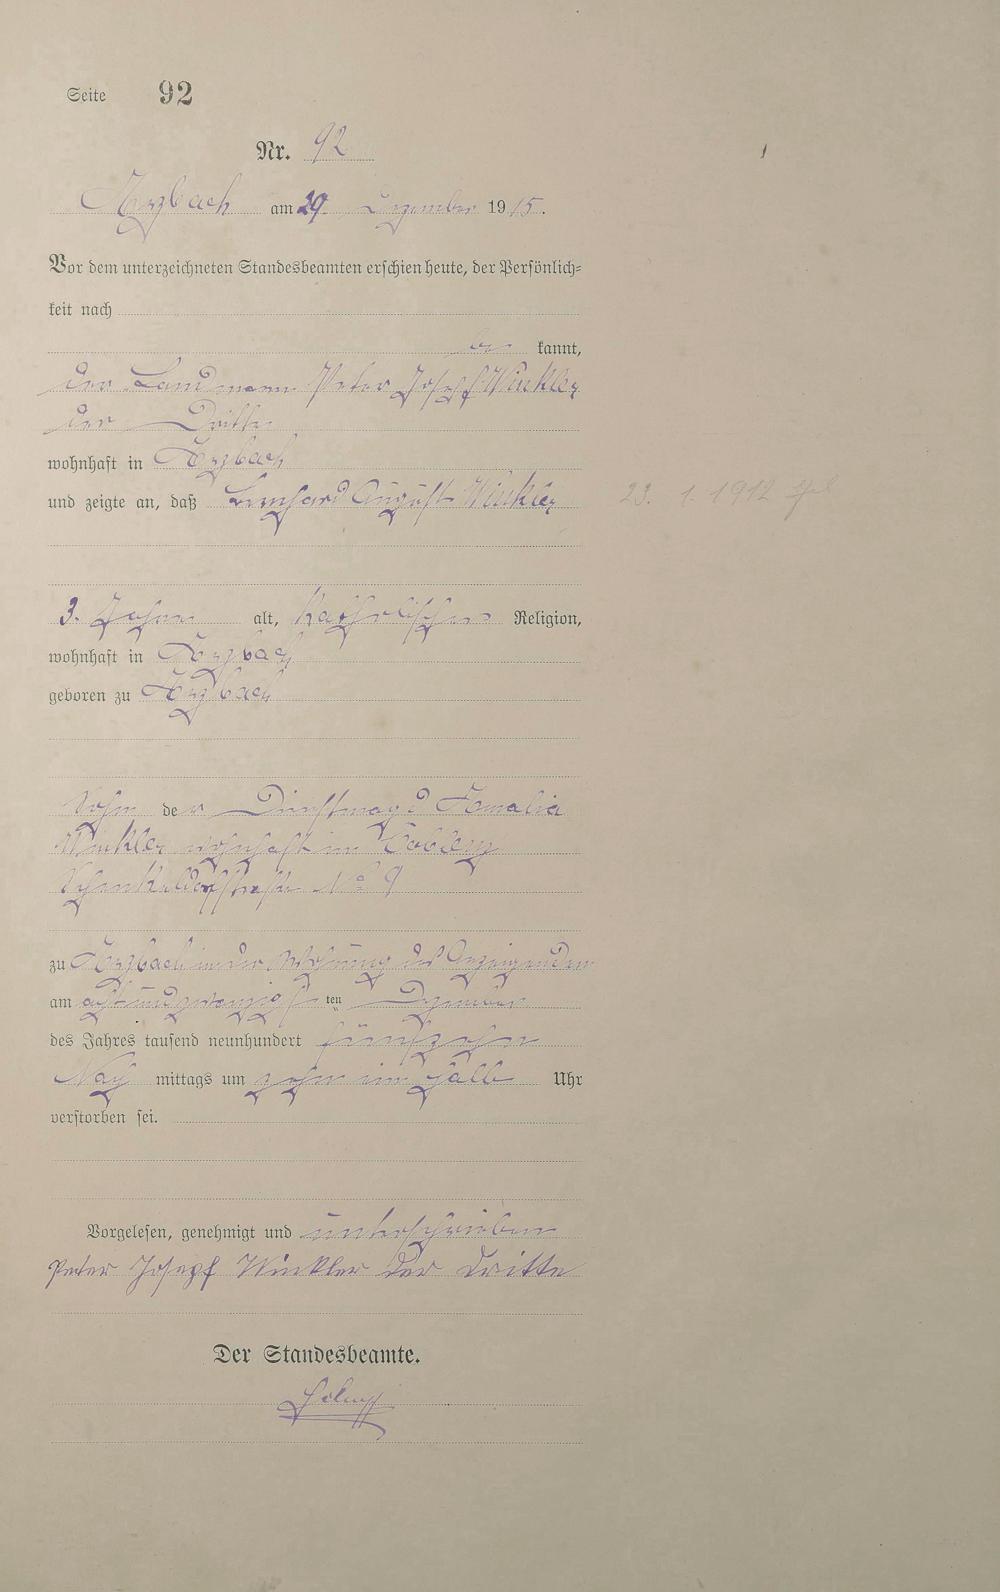 Seite 92
Nr. 92
Arzbach am 29. Dezember 1915.
Vor dem unterzeichneten Standesbeamten erschien heute, der Persönlich-
keit nach
be kannt,
der Landmann Peter Josef Winkler
der Dritte
wohnhaft in Arzbach
und zeigte an, daß Bernhard August Winkler
23. 1. 1912
3 Jahre alt, katholischer Religion,
wohnhaft in Arzbach
geboren zu Arzbach
Sohn der Dienstmagd
Winkler wohnhaft in Coblenz
No 9
zu Arzbach in der Wohnung des Anzeigenden
am achtundzwanzigsten Dezember
des Jahres tausend neunhundert fünfzehn
Nach mittags um zehn ein halb Uhr
verstorben sei.
Vorgelesen, genehmigt und unterschrieben
Peter Josepf Winkler der Dritte
Der Standesbeamte.